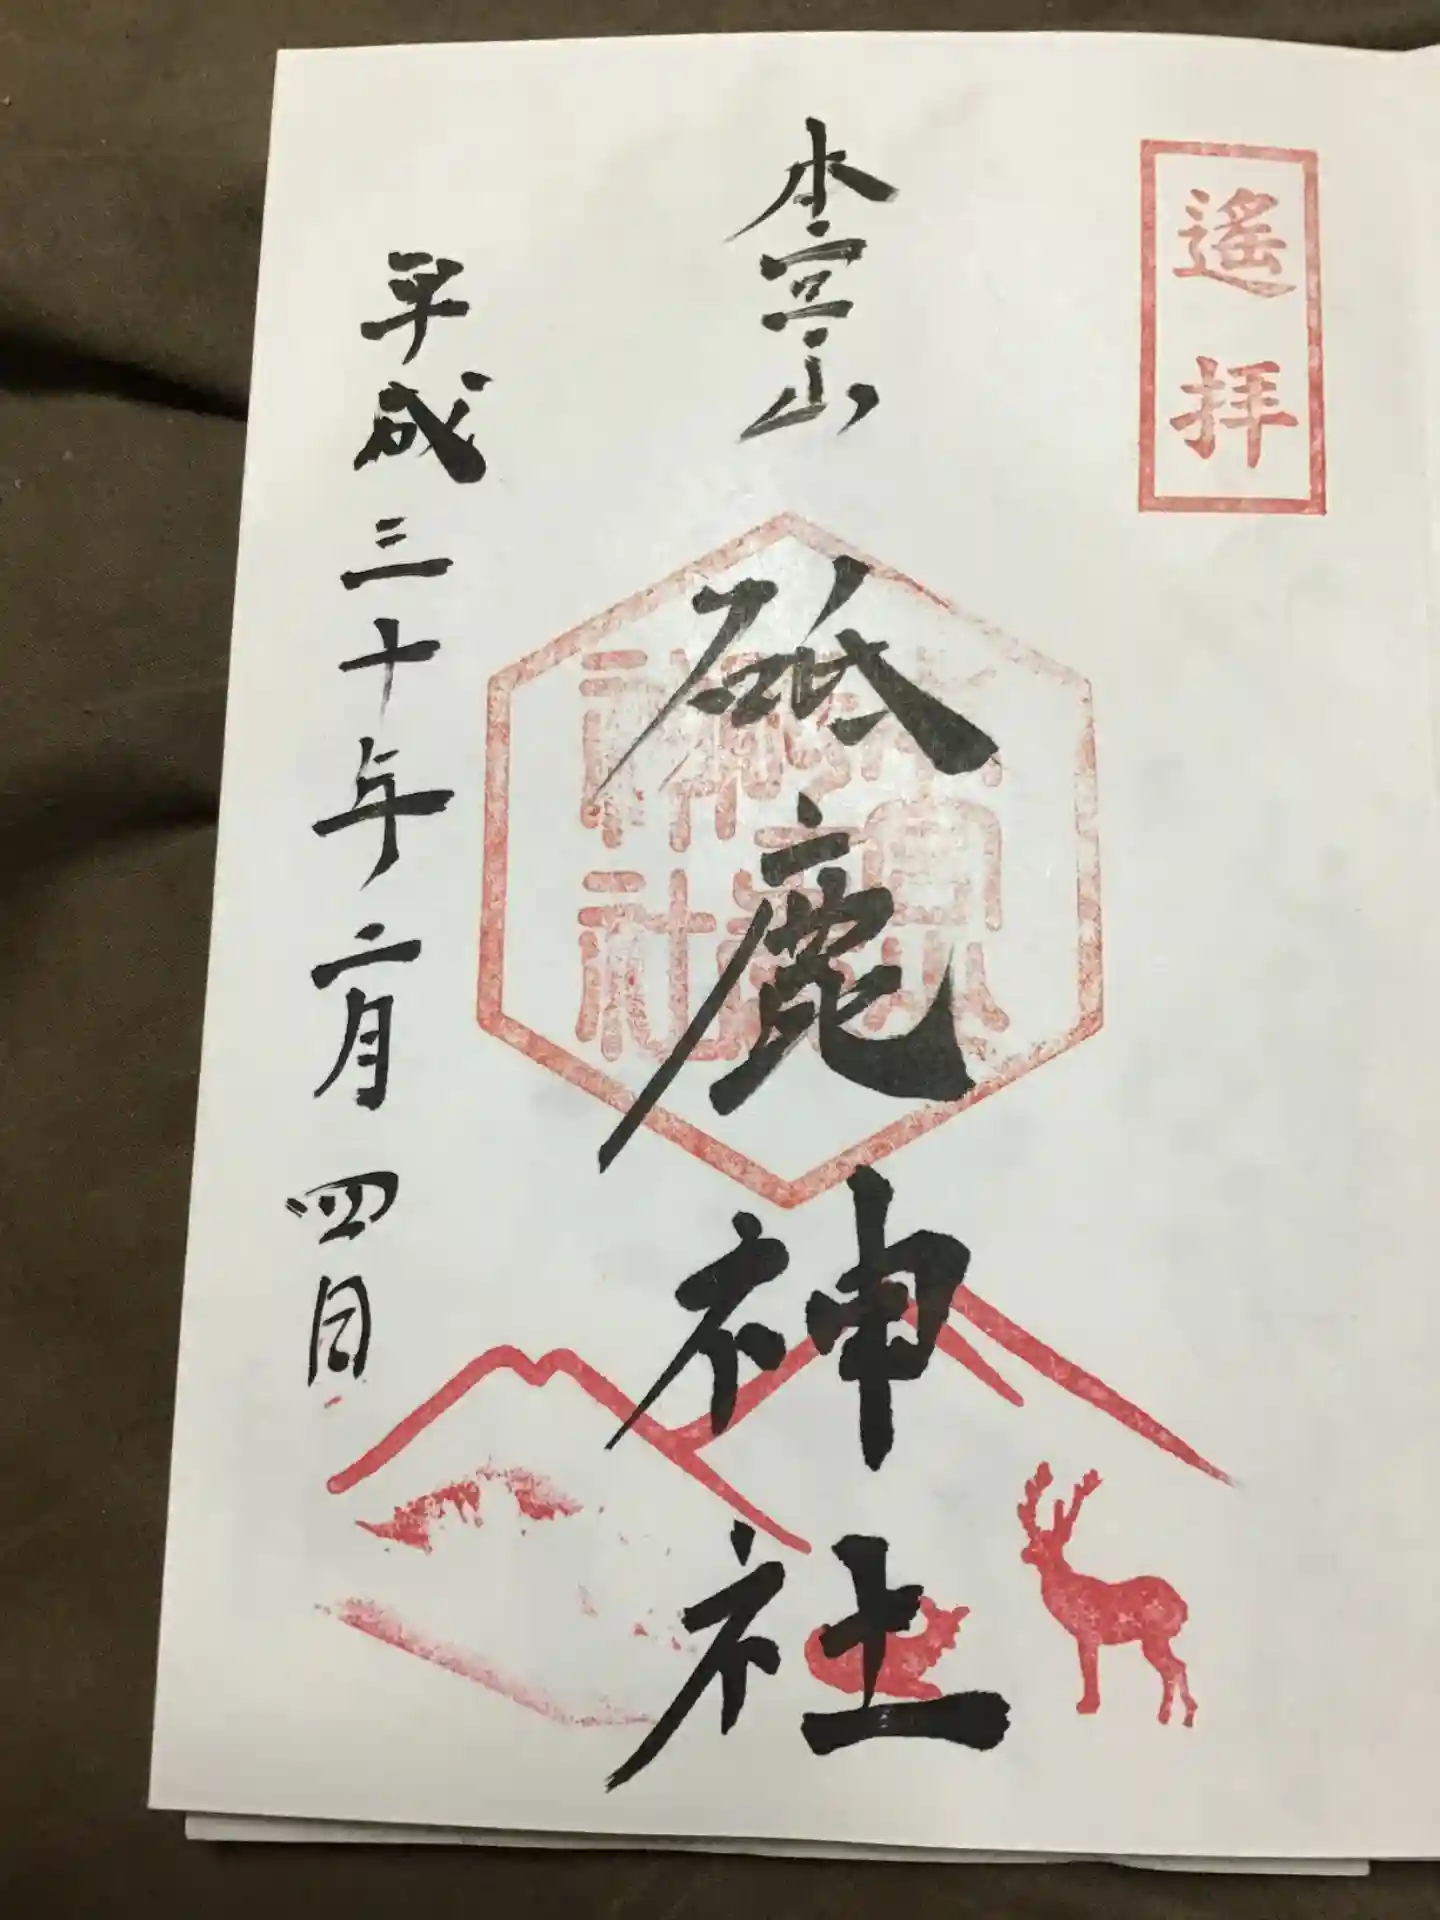 遙拝
本宮山
砥鹿神社
平成三十年二月四日